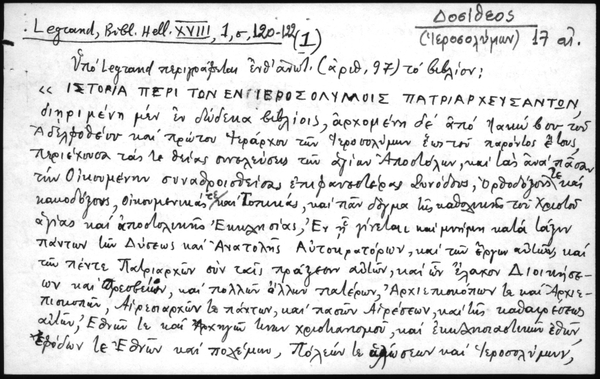 Δοσίθεος
Legrand, Bibl. Hell. XVIII, 1, σ, 120-122 (1)
(Ἱεροσολύμων) 17 αἰ.
Ὑπὸ Legrand περιγράφεται ἐνθ' ἀνωτ. (ἀριθ, 97) τὸ βιβλίον;
« ΙΣΤΟΡΙΑ ΠΕΡΙ ΤΩΝ ΕΝ ΙΕΡΟΣΟΛΥΜΟΙΣ ΠΑΤΡΙΑΡΧΕΥΣΑΝΤΩΝ,
διῃρημένη μὲν ἐν δώδεκα βιβλίοις, ἀρχομένη δὲ ἀπὸ Ἰακώβου τοῦ
Ἀδελφοθέου καὶ πρώτου Ἱεράρχου τῶν Ἱεροσολύμων ἕως τοῦ παρόντος ἔτους,
περιέχουσα τάς τε θείας συνελεύσεις τῶν ἁγίων Ἀποστόλων, καὶ τὰς ἀνὰ πᾶσαν
τὴν Οἰκουμένην συναθροισθείσας ἐπιφανεστέρας Συνόδους, Ὀρθοδόξους τε καὶ
κακοδόξους, Οἰκουμενικάς τε καὶ Τοπικάς, καὶ πᾶν δόγμα τῆς καθολικῆς τοῦ Χριστοῦ
ἁγίας καὶ ἀποστολικῆς Ἐκκλησίας, Ἐν ᾗ γίνεται καὶ μνήμη κατὰ τάξιν
πάντων τῶν Δύσεως καὶ Ἀνατολῆς Αὐτοκρατόρων, καὶ τῶν ἔργων αὐτῶν, καὶ
τῶν πέντε Πατριαρχῶν σὺν ταῖς πράξεσιν αὐτῶν, καὶ ὧν ἔλαχον Διοικήσε-
ων καὶ Πρεσβείων, καὶ πολλῶν ἄλλων πατέρων, Ἀρχιεπισκόπων τε καὶ Ἀρχιε-
πισκοπῶν, Αἱρεσιαρχῶν τε πάντων, καὶ πασῶν Αἱρέσεων, καὶ τῆς καθαιρέσεως
αὐτῶν, Ἐθνῶν τε καὶ ἀρχηγῶν χριστιανισμοῦ, καὶ ἐκκλησιαστικῶν ἐθῶν,
ἐφόδων τε Ἐθνῶν καὶ πολέμων, Πόλεών τε ἁλώσεων καὶ Ἱεροσολύμων,